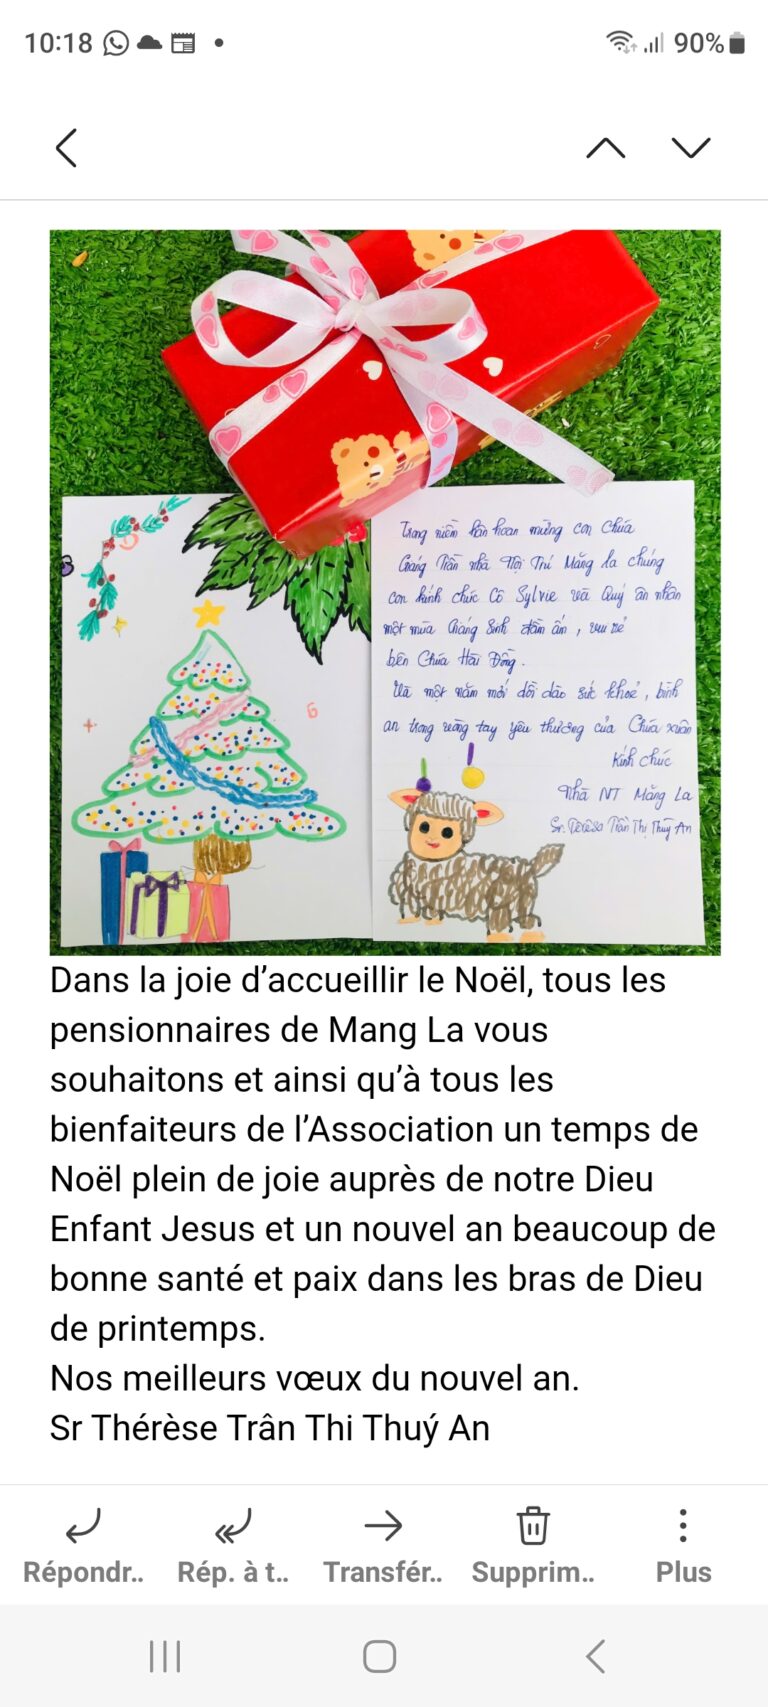 10:18
90%
Trong niềm hân hoan mừng con Chúa
Giáng Trần nhà Nội Trú Măng La chúng
con kính chúc Cô Sylvie và Quý ân nhân
một mùa Giáng Sinh đầm ấm, vui vẻ
bên Chúa Hài Đồng.
Và một năm mới dồi dào sức khoẻ, bình
an trong vòng tay yêu thương của Chúa xuân
Kính chúc
Nhà NT Măng La
Sr. Têrêsa Trần Thị Thuỳ An
Dans la joie d’accueillir le Noël, tous les
pensionnaires de Mang La vous
souhaitons et ainsi qu’à tous les
bienfaiteurs de l’Association un temps de
Noël plein de joie auprès de notre Dieu
Enfant Jesus et un nouvel an beaucoup de
bonne santé et paix dans les bras de Dieu
de printemps.
Nos meilleurs vœux du nouvel an.
Sr Thérèse Trân Thi Thuý An
Répondr.. Rép. à t.. Transfér.. Supprim.. Plus